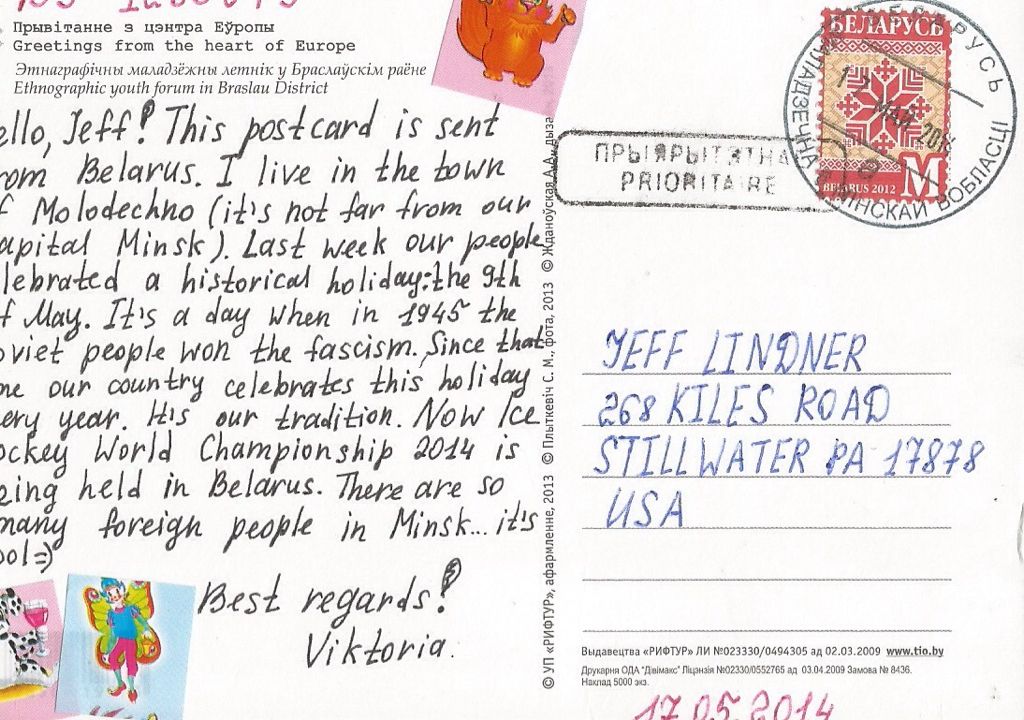 Прывітанне з цэнтра Еўропы
Greetings from the heart of Europe
Этнаграфічны маладзёжны летнік у Браслаўскім раёне
Ethnographic youth forum in Braslau District
ello, Jeff! This postcard is sent
rom Belarus. I live in the town
f Molodechno (it's not far from our
apital Minsk). Last week our people
lebrated a historical holiday: the 9th
f May. It's a day when in 1945 the
oviet people won the fascism. Since that
me our country celebrates this holiday
ery year. It's our tradition. Now Ice
ockey World Championship 2014 is
eing held in Belarus. There are so
many foreign people in Minsk... it's
ool =)
Best regards!
Viktoria.
© УП «РИФТУР», афармленне, 2013 © Плыткевіч С. М., фота, 2013 © Ждановская А.А.,
БЕЛАРУСЬ
BELARUS 2012 М
БЕЛАРУСЬ
МАЛАДЗЕЧНА МІНСКАЙ ВОБЛАСЦІ
ПРЫЯРЫТЭТНА
PRIORITAIRE
JEFF LINDNER
268 KILES ROAD
STILLWATER PA 17878
USA
Выдавецтва «РИФТУР» ЛИ №023330/0494305 ад 02.03.2009 www.tio.by
Друкарня ОДА "Дівімакс" Ліцэнзія №02330/0552765 ад 03.04.2009 Замова № 8436.
Наклад 5000 экз.
17.05.2014